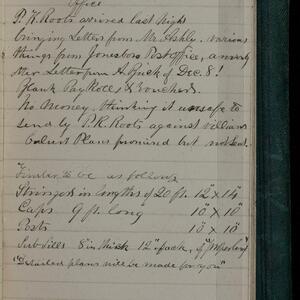 Office
P. K. Roots arrived last night
bringing Letter from Mr. Ashly. various
things from Jonesboro Post Office, among
other Letter from H. Pinck of Dec. 8!
Blank Pay Rolls & Vouchers.
No Money. thinking it unsafe to
send by P. K. Roots against
Culvert Plans promised but not sent.
Timber to be as follows
Stringers in lengths of 20 ft. 12" x 14"
Caps 9 ft. long 10" x 10"
Posts 10" x 10"
Sub Sills 8 in thick 12" face,
"Detailed plans will be made for you"